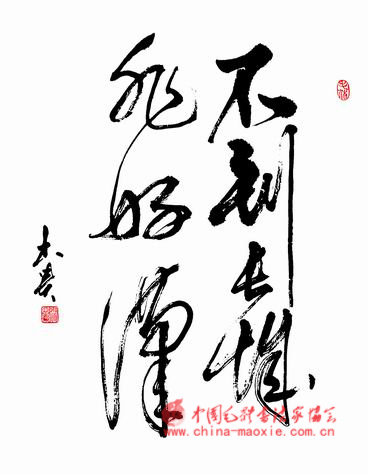 不到长城
非好漢
中国毛体书法家协会
www.china-maoxie.com.cn